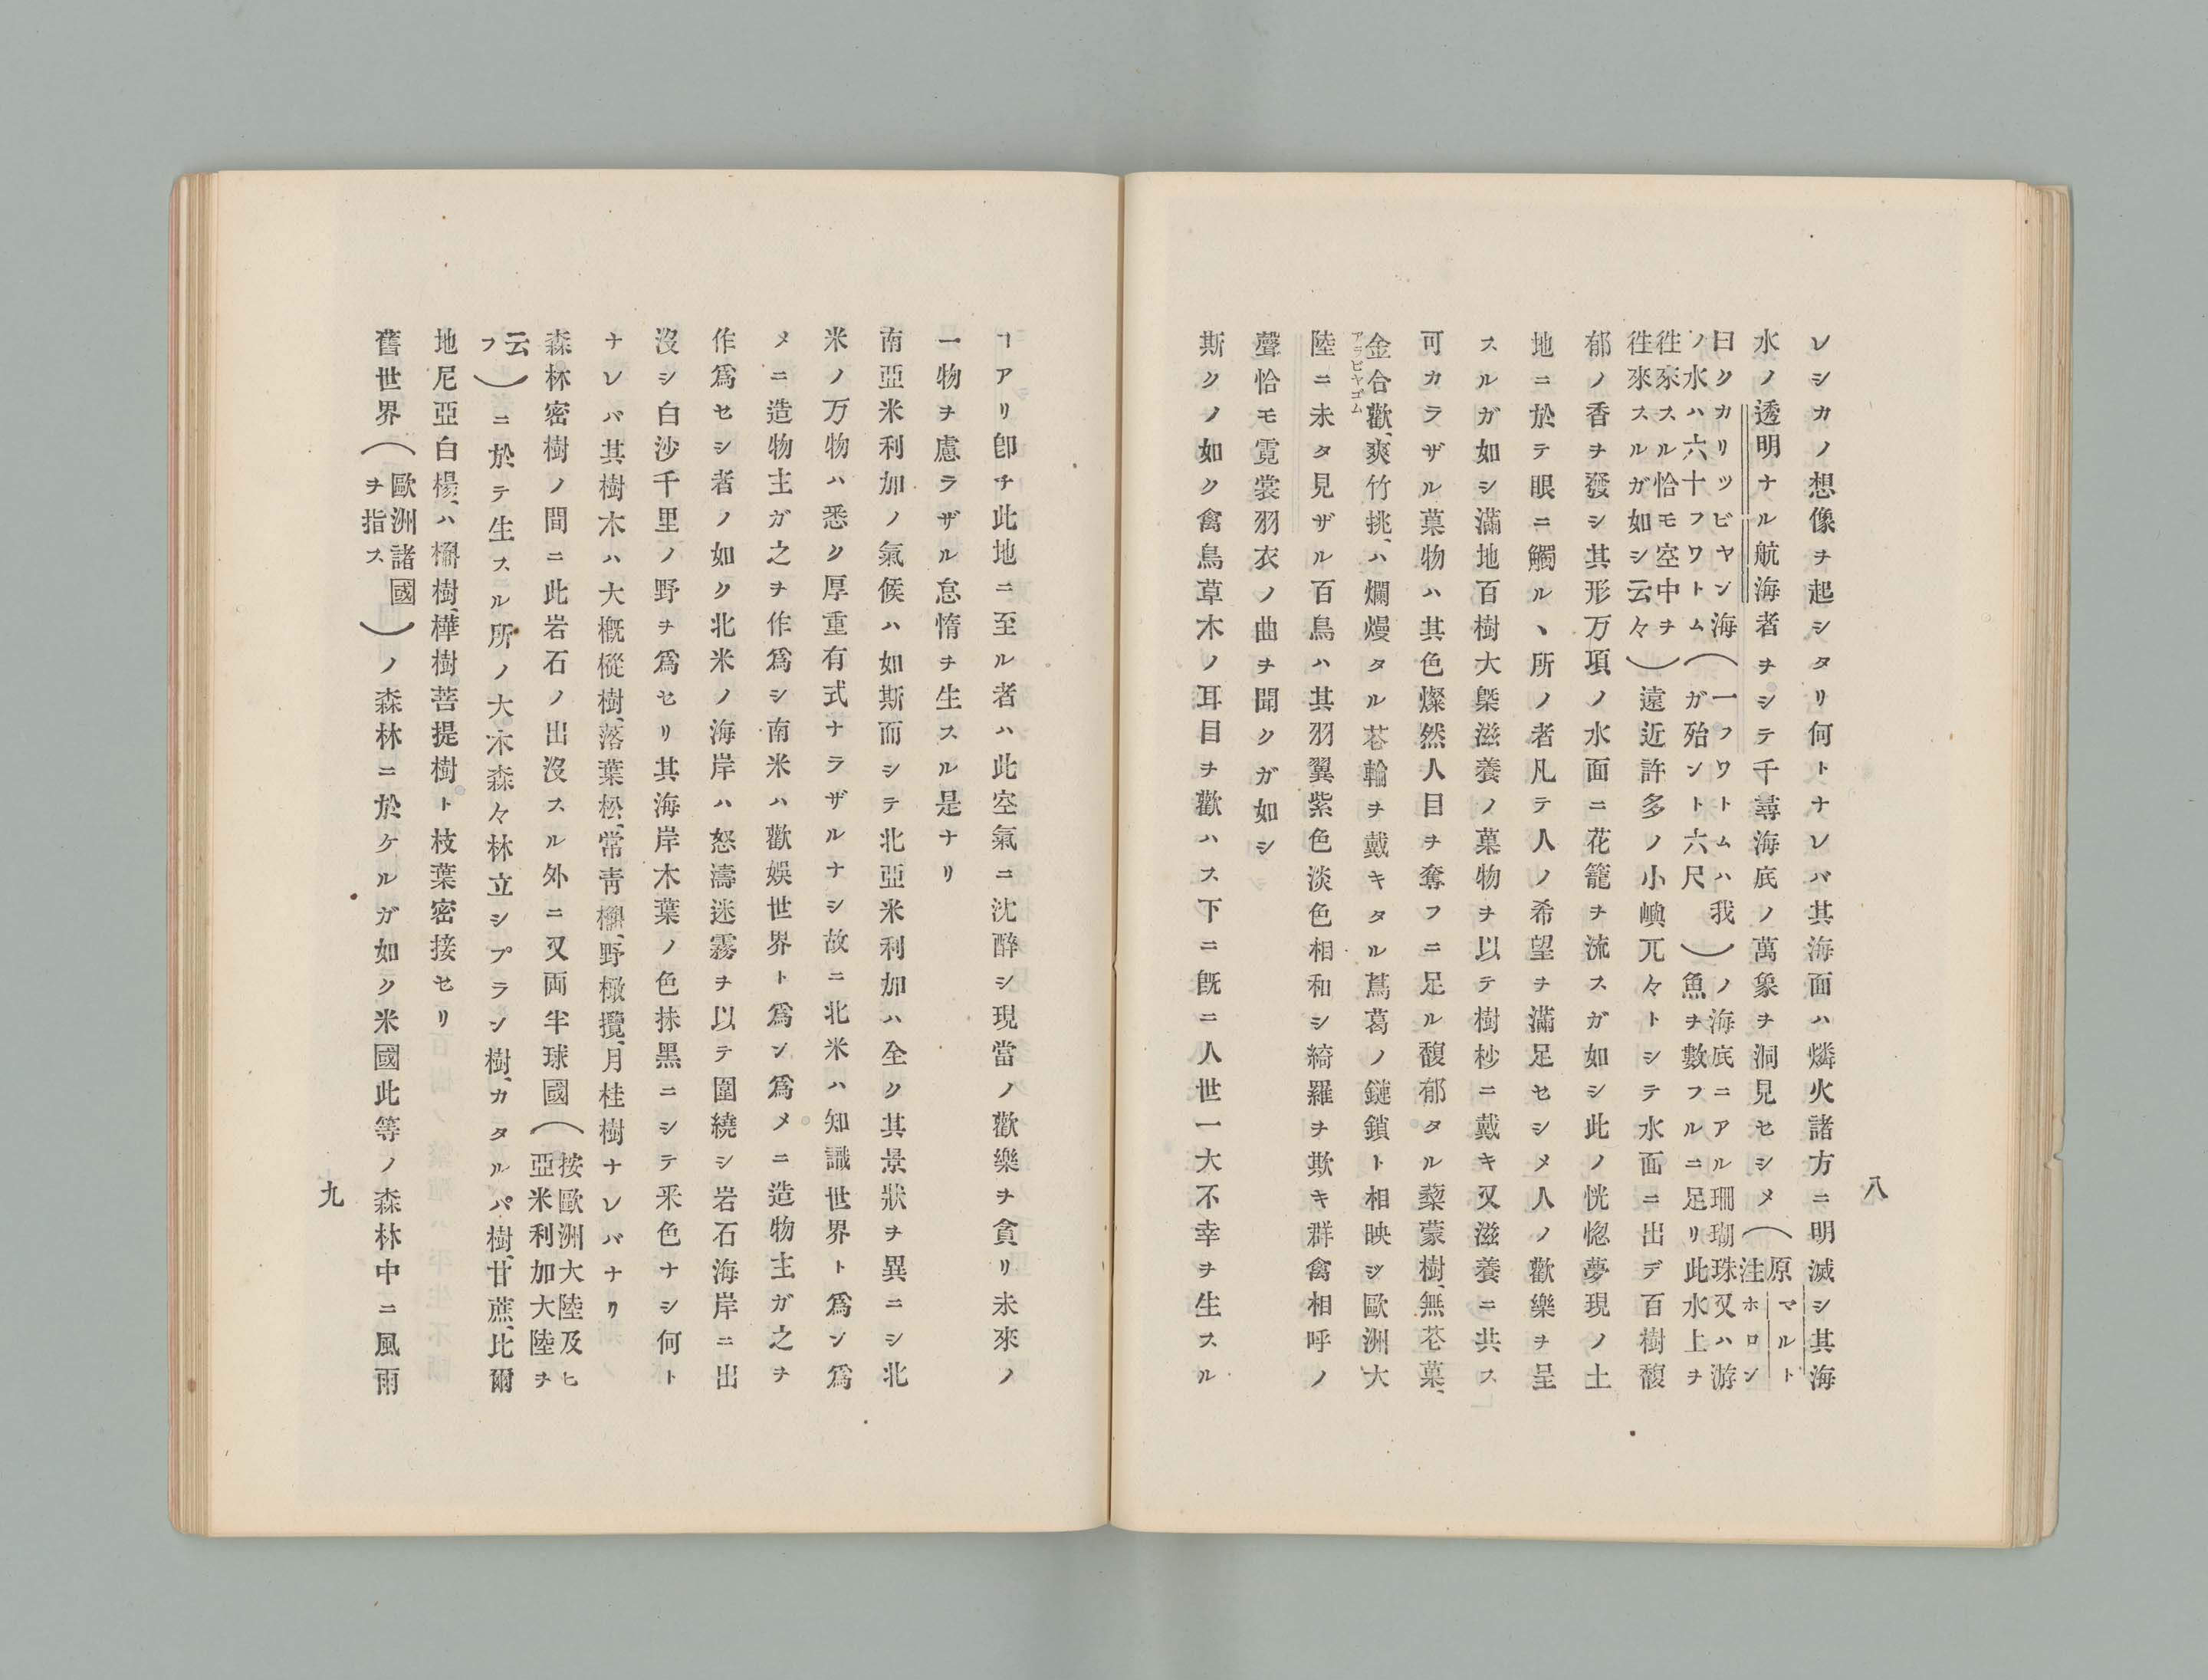 八
レシカノ想像ヲ起シタリ何トナレバ其海面ハ燐火諸方ニ明滅シ其海
水ノ透明ナル航海者ヲシテ千尋海底ノ萬象ヲ洞見セシメ(原注マルトホロン
曰クカリツビヤン海(一フワトムハ我
ガ殆ント六尺)ノ海底ニアル珊瑚珠又ハ游
魚ヲ數フルニ足リ此水上ヲ
ノ水ハ六十フワトム
徃來スル恰モ空中ヲ
徃來スルガ如シ云々)遠近許多ノ小嶼兀々トシテ水面ニ出デ百樹馥
郁ノ香ヲ發シ其形万項ノ水面ニ花籠ヲ流スガ如シ此ノ恍惚夢現ノ土
地ニ於テ眼ニ觸ルヽ所ノ者凡テ人ノ希望ヲ滿足セシメ人ノ歡樂ヲ呈
スルガ如シ滿地百樹大槩滋養ノ菓物ヲ以テ樹杪ニ戴キ又滋養ニ共ス
可カラザル菓物ハ其色燦然人目ヲ奪フニ足ル馥郁タル蔾蒙樹、無芲菓、
金合歡、爽竹挑、ハ爛熳タル芲輪ヲ戴キタル蔦葛ノ鏈鎖ト相映ジ歐洲大
アラビヤゴム
陸ニ未タ見ザル百鳥ハ其羽翼紫色淡色相和シ綺羅ヲ欺キ群禽相呼ノ
聲恰モ霓裳羽衣ノ曲ヲ聞クガ如シ
斯クノ如ク禽鳥草木ノ耳目ヲ歡ハス下ニ既ニ人世一大不幸ヲ生スル
ヿアリ卽チ此地ニ至ル者ハ此空氣ニ沈醉シ現當ノ歡樂ヲ貪リ未來ノ
一物ヲ慮ラザル怠惰ヲ生スル是ナリ
南亞米利加ノ氣候ハ如斯而シテ北亞米利加ハ全ク其景狀ヲ異ニシ北
米ノ万物ハ悉ク厚重有式ナラザルナシ故ニ北米ハ知識世界ト爲ン爲
メニ造物主ガ之ヲ作爲シ南米ハ歡娛世界ト爲ン爲メニ造物主ガ之ヲ
作爲セシ者ノ如ク北米ノ海岸ハ怒濤迷霧ヲ以テ圍繞シ岩石海岸ニ出
沒シ白沙千里ノ野ヲ爲セリ其海岸木葉ノ色抹黑ニシテ釆色ナシ何ト
ナレバ其樹木ハ大概樅樹、落葉松、常靑槲、野橄攬、月桂樹ナレバナリ
森林密樹ノ間ニ此岩石ノ出沒スル外ニ又両半球國(按歐洲大陸及ヒ
亞米利加大陸ヲ
云フ)ニ於テ生スル所ノ大木森々林立シプラン樹、カタルパ樹、甘蔗、比爾
地尼亞白楊、ハ槲樹、樺樹菩提樹ト枝葉密接セリ
舊世界(歐洲諸國
ヲ指ス)ノ森林ニ於ケルガ如ク米國此等ノ森林中ニ風雨
九